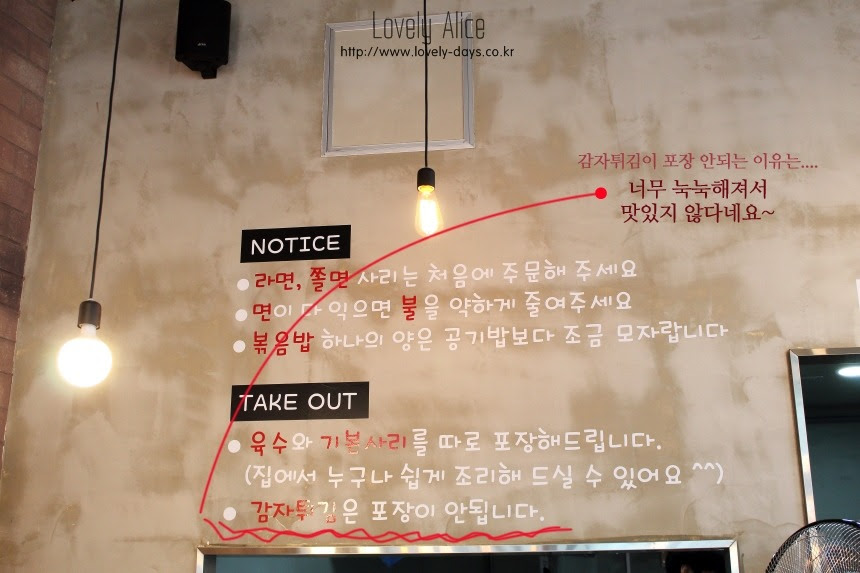 Lovely Alice
http://www.lovely-days.co.kr
감자튀김이 포장 안되는 이유는....
너무 눅눅해져서
맛있지 않다네요~
NOTICE
라면, 쫄면 사리는 처음에 주문해 주세요
면이 다 익으면 불을 약하게 줄여주세요
볶음밥 하나의 양은 공기밥보다 조금 모자랍니다
TAKE OUT
육수와 기본사리를 따로 포장해드립니다.
(집에서 누구나 쉽게 조리해 드실 수 있어요 ^^)
감자튀김은 포장이 안됩니다.